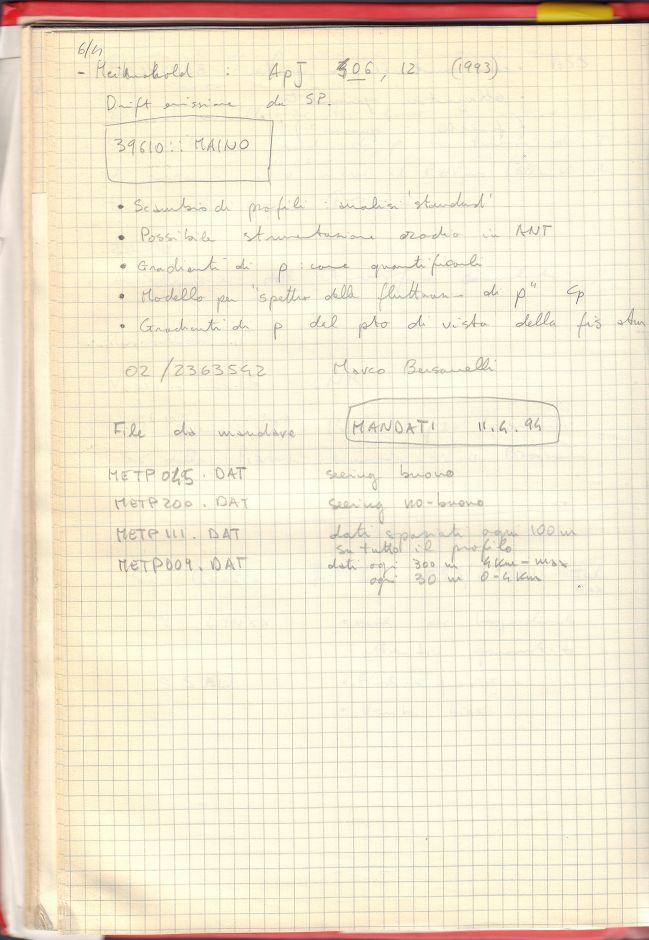 6/4
- Meinhold : ApJ 406, 12 (1993)
Drift emissione da SP.
39610:: MAINO
• Scambio di profili : analisi 'standard'
• Possibile strumentazione radio in ANT
• Gradienti di ρ : come quantificarli
• Modello per "spettro delle di ρ"
• Gradienti di ρ dal pto di vista della fis
02/2363542 Marco Bersanelli
File da mandare MANDATI 11.4.94
METP045.DAT seeing buono
METP200.DAT seeing no-buono
METP111.DAT dati spaziati ogni 100 m
su tutto il profilo
METP009.DAT dati ogni 300 m 4Km-max
ogni 30 m 0-4Km